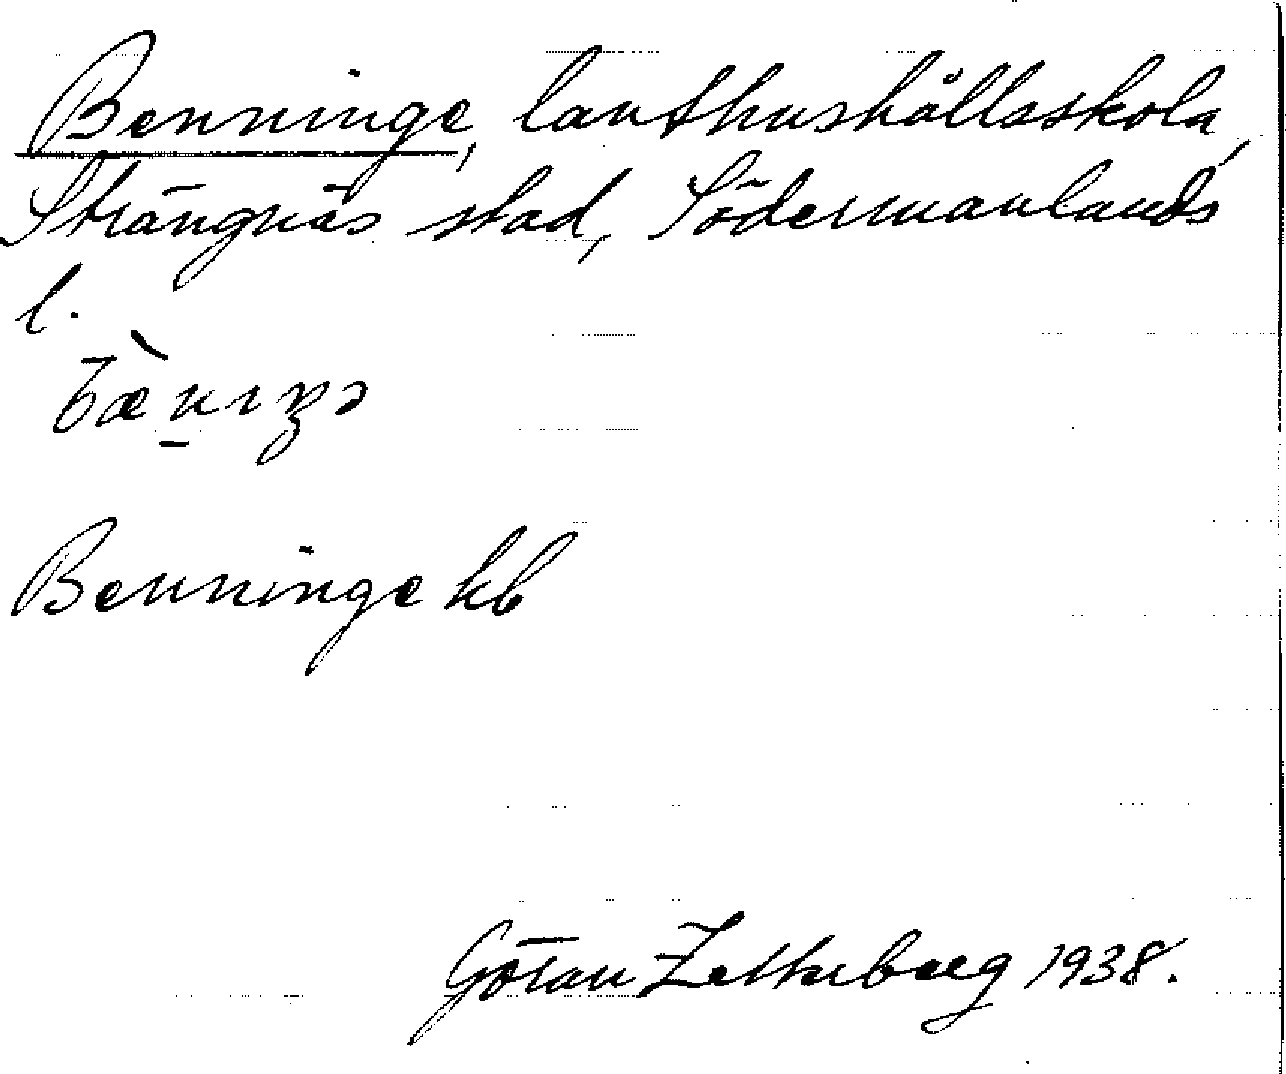 Benninge, lanthushållsskola,
Strängnäs stad, Södermanlands
l.
Benninge kb
Göran Zetterberg 1938.